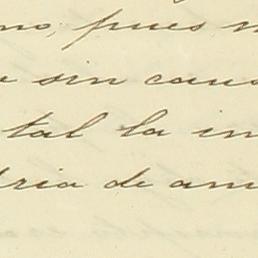 no, pues n
sin caus
tal la in
dria de am